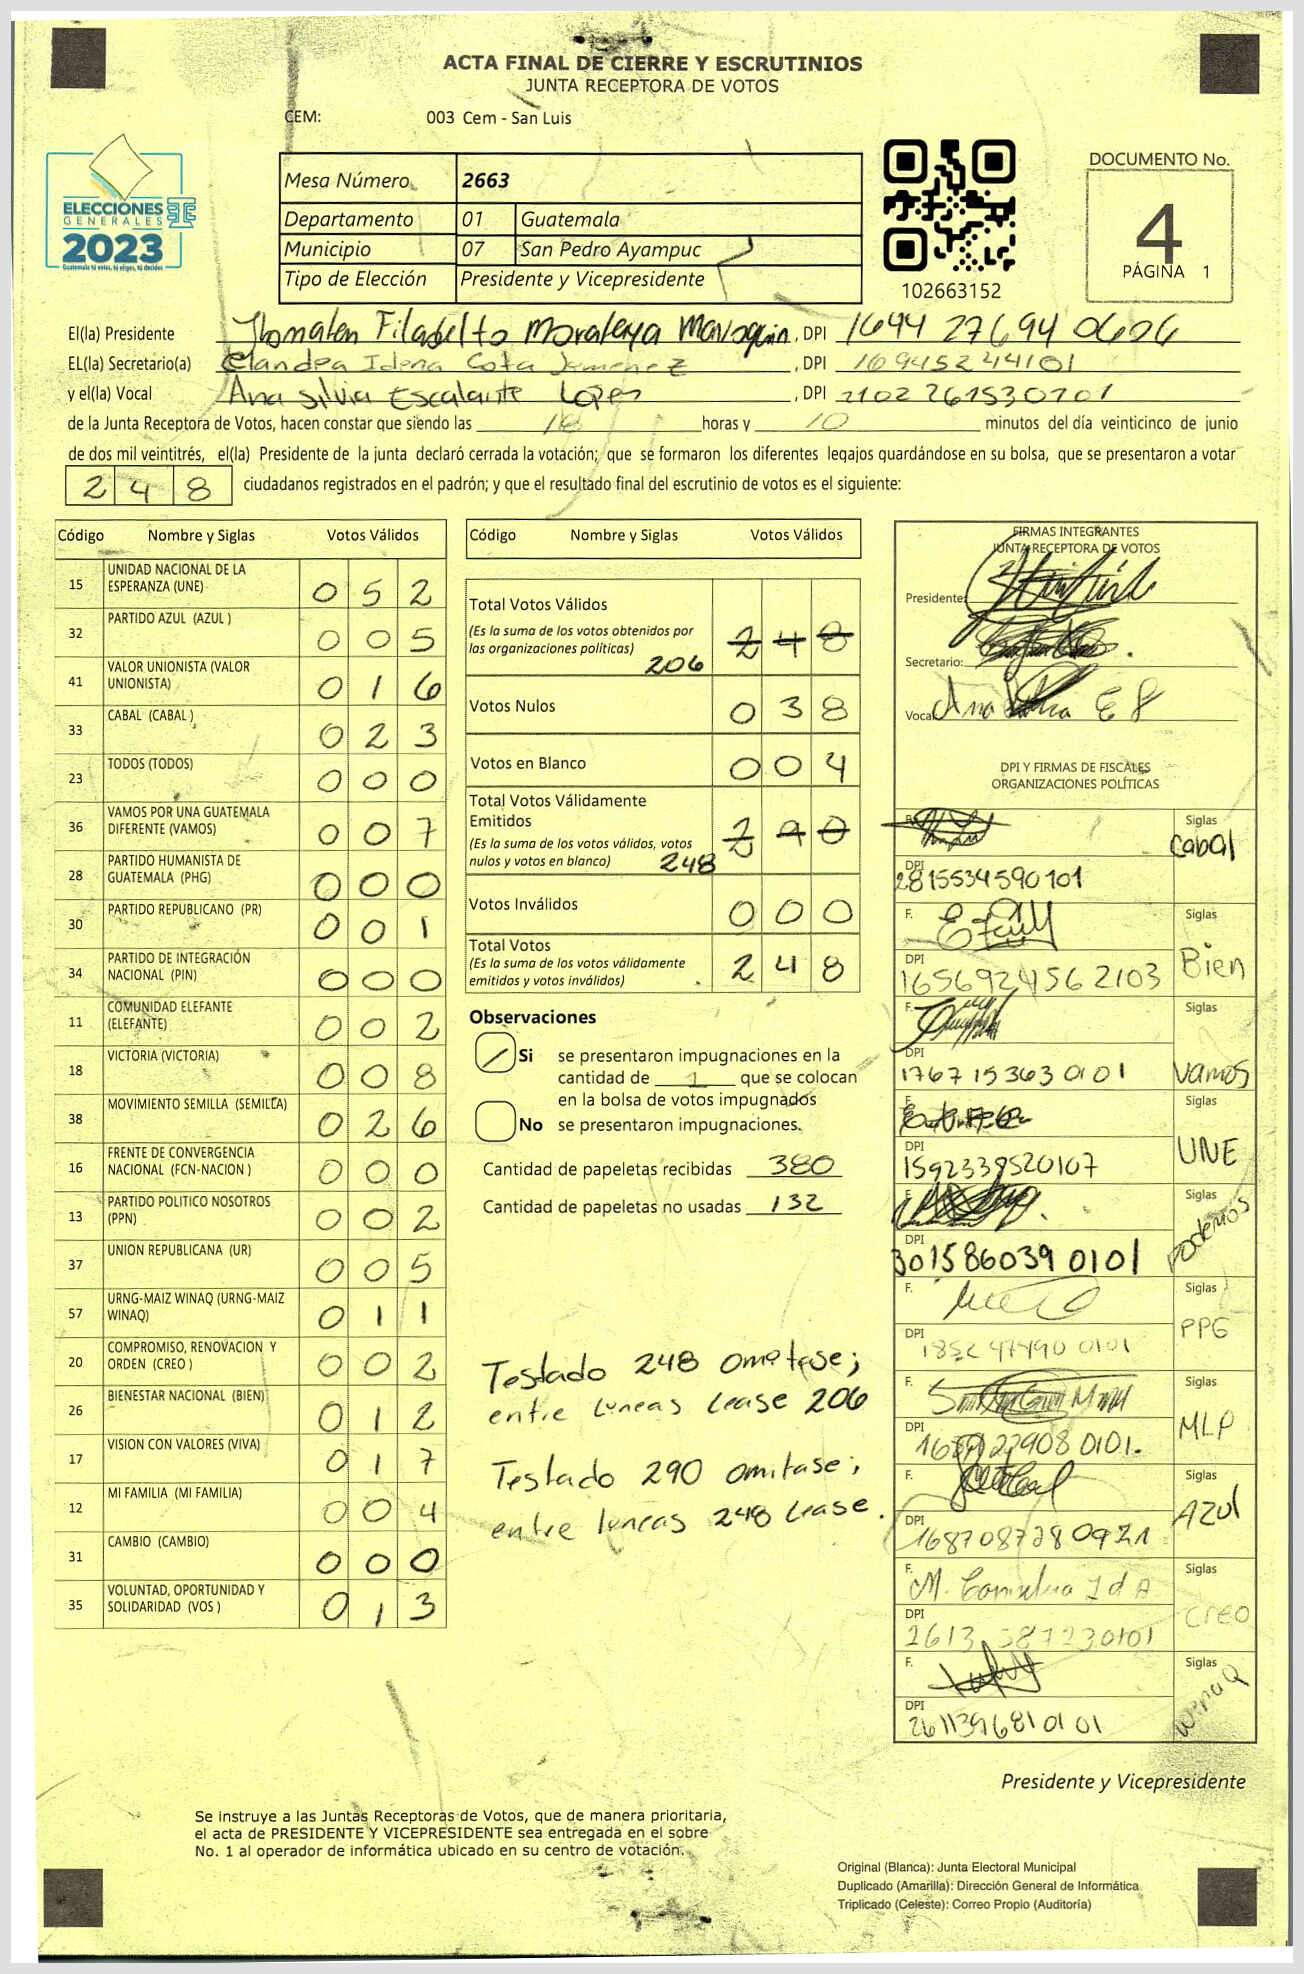 ACTA FINAL DE CIERRE Y ESCRUTINIOS
JUNTA RECEPTORA DE VOTOS
CEM: 003 Cem - San Luis
ELECCIONES
GENERALES
2023
Guatemala tú votas, tú eliges, tú decides
Mesa Número 2663
Departamento 01 Guatemala
Municipio 07 San Pedro Ayampuc
Tipo de Elección Presidente y Vicepresidente
102663152
DOCUMENTO No.
4
PÁGINA 1
El(la) Presidente Filadelfo , DPI 1644 27694 0606
EL(la) Secretario(a) , DPI 16945244101
y el(la) Vocal Ana Silvia Escalante Lopez , DPI 2102 261530701
de la Junta Receptora de Votos, hacen constar que siendo las 18 horas y 10 minutos del día veinticinco de junio
de dos mil veintitrés, el(la) Presidente de la junta declaró cerrada la votación; que se formaron los diferentes legajos guardándose en su bolsa, que se presentaron a votar
248 ciudadanos registrados en el padrón; y que el resultado final del escrutinio de votos es el siguiente:
Código Nombre y Siglas Votos Válidos
15 UNIDAD NACIONAL DE LA ESPERANZA (UNE) 052
32 PARTIDO AZUL (AZUL ) 005
41 VALOR UNIONISTA (VALOR UNIONISTA) 016
33 CABAL (CABAL ) 023
23 TODOS (TODOS) 000
36 VAMOS POR UNA GUATEMALA DIFERENTE (VAMOS) 007
28 PARTIDO HUMANISTA DE GUATEMALA (PHG) 000
30 PARTIDO REPUBLICANO (PR) 001
34 PARTIDO DE INTEGRACIÓN NACIONAL (PIN) 000
11 COMUNIDAD ELEFANTE (ELEFANTE) 002
18 VICTORIA (VICTORIA) 008
38 MOVIMIENTO SEMILLA (SEMILLA) 026
16 FRENTE DE CONVERGENCIA NACIONAL (FCN-NACION ) 000
13 PARTIDO POLITICO NOSOTROS (PPN) 002
37 UNION REPUBLICANA (UR) 005
57 URNG-MAIZ WINAQ (URNG-MAIZ WINAQ) 011
20 COMPROMISO, RENOVACION Y ORDEN (CREO ) 002
26 BIENESTAR NACIONAL (BIEN) 012
17 VISION CON VALORES (VIVA) 017
12 MI FAMILIA (MI FAMILIA) 004
31 CAMBIO (CAMBIO) 000
35 VOLUNTAD, OPORTUNIDAD Y SOLIDARIDAD (VOS ) 013
Código Nombre y Siglas Votos Válidos
Total Votos Válidos 248
(Es la suma de los votos obtenidos por
las organizaciones políticas) 206
Votos Nulos 038
Votos en Blanco 004
Total Votos Válidamente
Emitidos 290
(Es la suma de los votos válidos, votos
nulos y votos en blanco) 248
Votos Inválidos 000
Total Votos 248
(Es la suma de los votos válidamente
emitidos y votos inválidos)
Observaciones
Si se presentaron impugnaciones en la
cantidad de 1 que se colocan
en la bolsa de votos impugnados
No se presentaron impugnaciones.
Cantidad de papeletas recibidas 380
Cantidad de papeletas no usadas 132
Testado 248 omitase;
entre lineas lease 206
Testado 290 omitase;
entre lineas 248 lease.
FIRMAS INTEGRANTES
JUNTA RECEPTORA DE VOTOS
Presidente:
Secretario:
Vocal
DPI Y FIRMAS DE FISCALES
ORGANIZACIONES POLÍTICAS
Siglas Cabal
DPI 2815534590101
F. Siglas Bien
DPI 1656924562103
F. Siglas Vamos
DPI 1767153630101
F. Siglas UNE
DPI 1592339520107
F. Siglas Podemos
DPI 3015860390101
F. Siglas PPG
DPI 1852474900101
F. Siglas MLP
DPI
F. Siglas Azul
DPI 1687087780921
F. Siglas CREO
DPI 2613587230101
F. Siglas Winaq
DPI 2611396810101
Presidente y Vicepresidente
Se instruye a las Juntas Receptoras de Votos, que de manera prioritaria,
el acta de PRESIDENTE Y VICEPRESIDENTE sea entregada en el sobre
No. 1 al operador de informática ubicado en su centro de votación.
Original (Blanca): Junta Electoral Municipal
Duplicado (Amarilla): Dirección General de Informática
Triplicado (Celeste): Correo Propio (Auditoría)